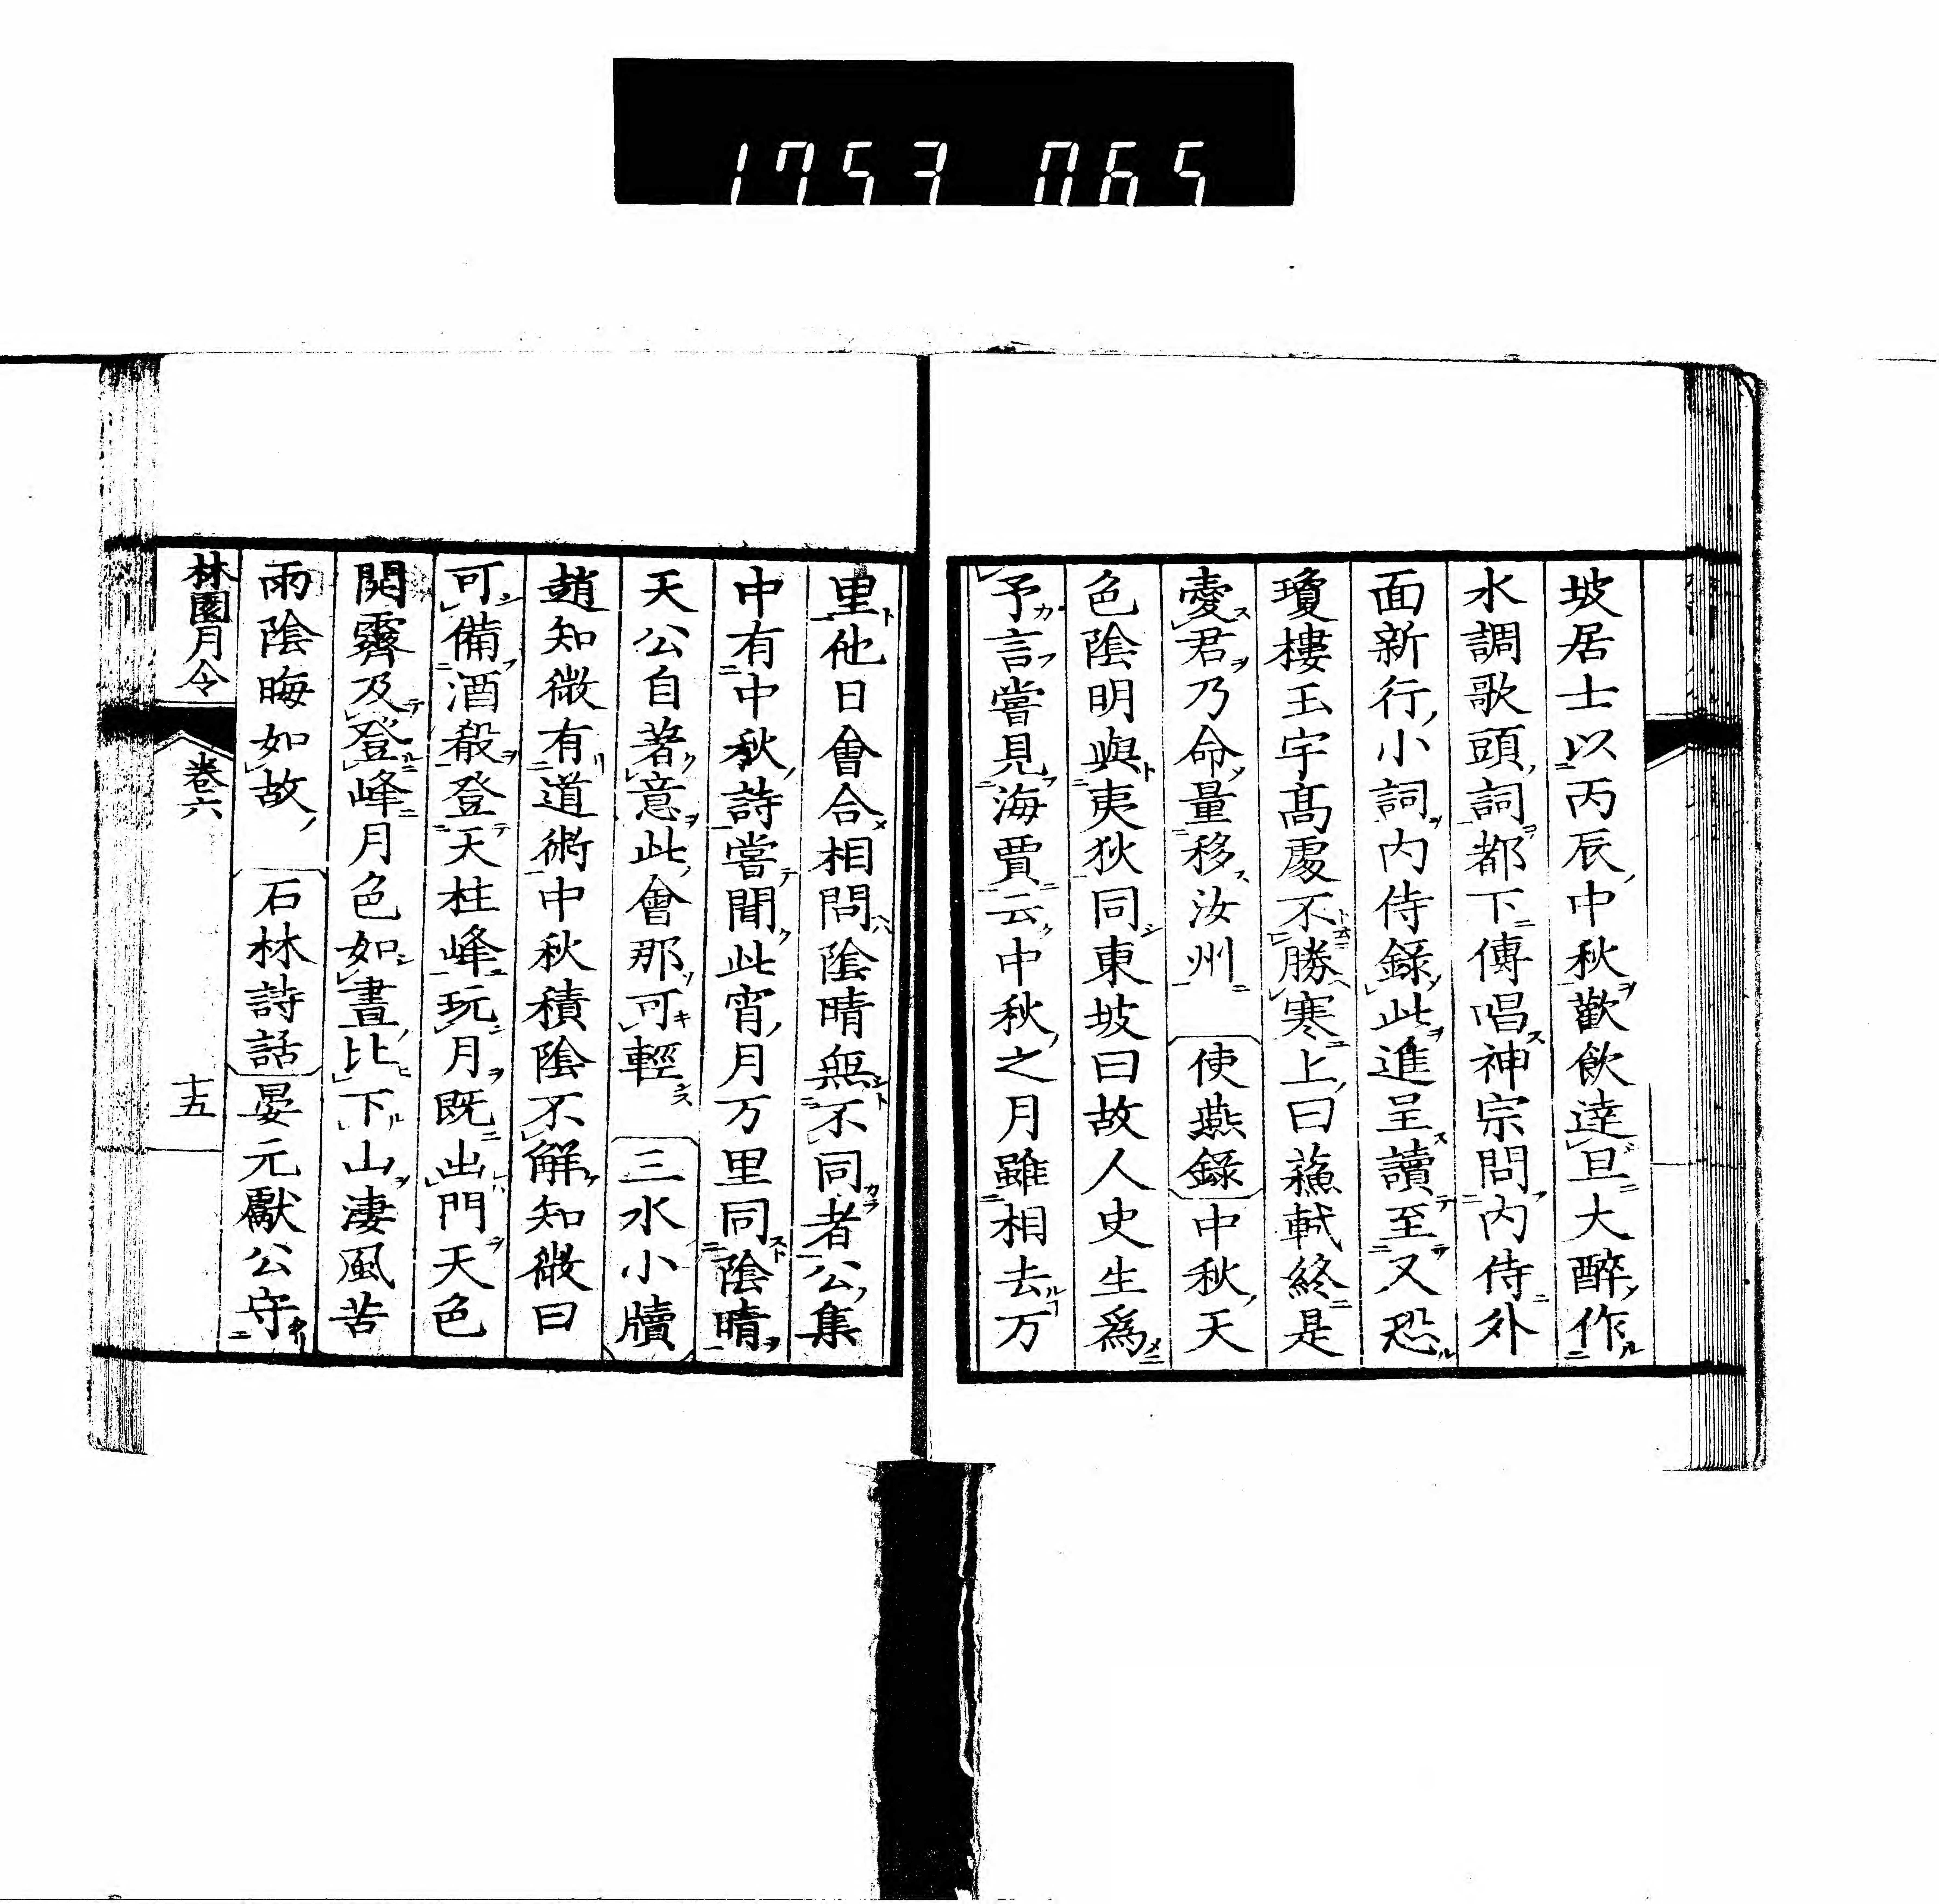 1753 065
坡居士以丙辰中秋歡飲達旦大醉作
水調歌頭詞都下傳唱神宗問内侍外
面新行小詞内侍錄此進呈讀至又恐
瓊樓玉宇髙處不勝寒上曰蘓軾終是
愛君乃命量移汝州 使燕錄 中秋天
色陰明與夷狄同東坡曰故人史生爲
予言嘗見海賈云中秋之月雖相去万
里他日會合相問陰晴無不同者公集
中有中秋詩嘗聞此宵月万里同陰晴
天公自著意此會那可輕 三水小牘
趙知微有道術中秋積陰不解知微曰
可備酒殽登天柱峰玩月既出門天色
開霽及登峰月色如晝比下山淒風苦
雨陰晦如故 石林詩話 晏元獻公守
林園月令 卷六 十五